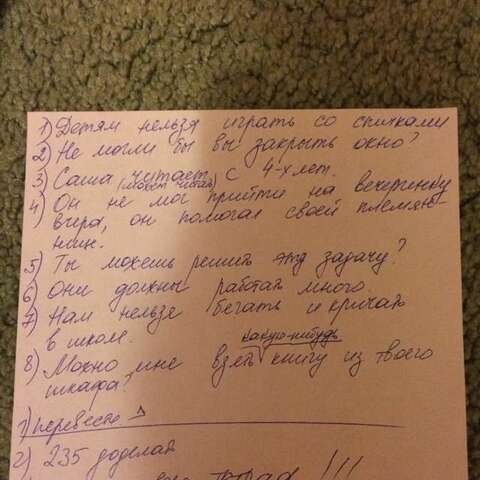 1) Детям нельзя играть со спичками
2) Не могли бы вы закрыть окно?
3) Саша читает с 4-х лет.
(может читать)
4) Он не мог прийти на вечеринку
вчера, он помогал своей племян-
нице.
5) Ты можешь решить эту задачу?
6) Они должны работать много.
7) Нам нельзя бегать и кричать
в школе.
какую-нибудь
8) Можно мне взять книгу из твоего
шкафа
1) перевести
2) 235 доделай
!!!